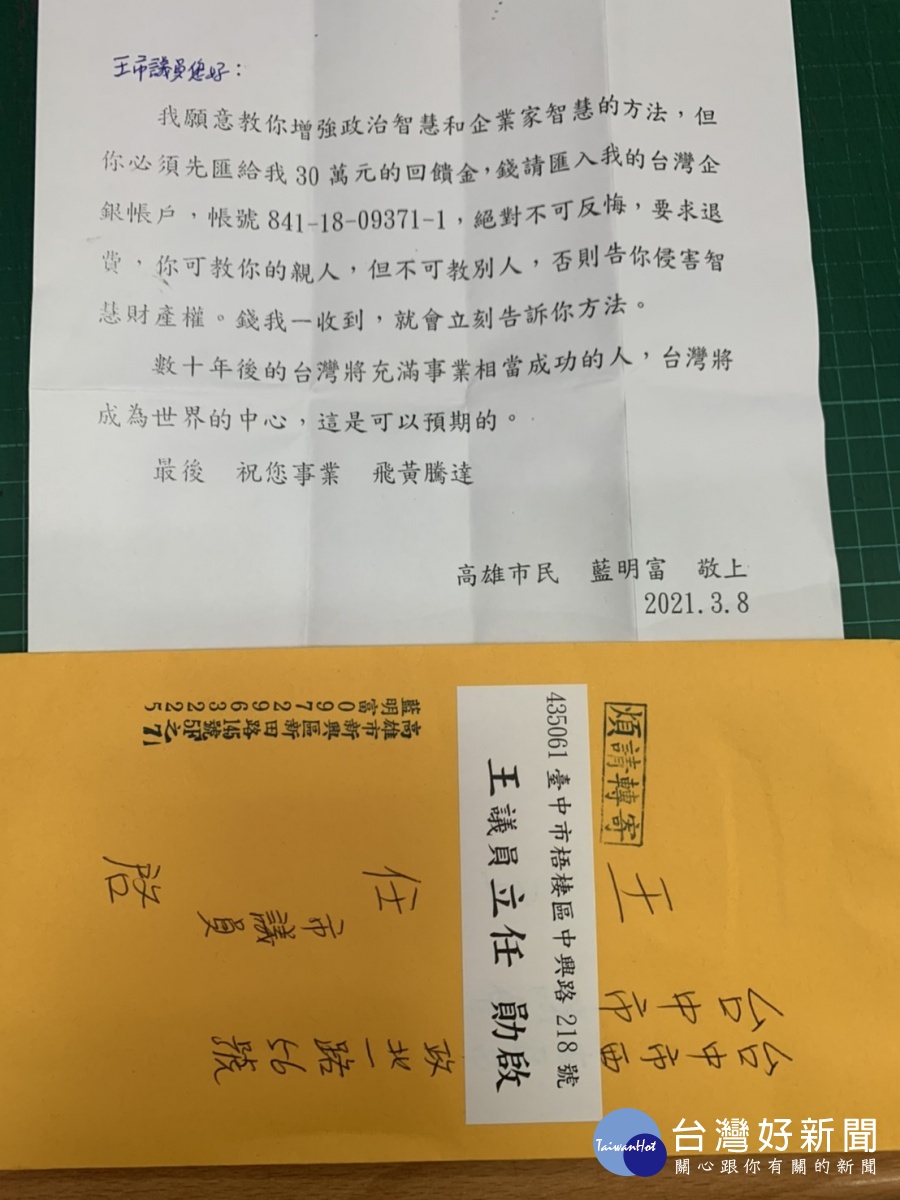 王市議員您好：
我願意教你增強政治智慧和企業家智慧的方法，但
你必須先匯給我30萬元的回饋金，錢請匯入我的台灣企
銀帳戶，帳號841-18-09371-1，絕對不可反悔，要求退
費，你可教你的親人，但不可教別人，否則告你侵害智
慧財產權。錢我一收到，就會立刻告訴你方法。
數十年後的台灣將充滿事業相當成功的人，台灣將
成為世界的中心，這是可以預期的。
最後　祝您事業　飛黃騰達
高雄市民　藍明富　敬上
2021.3.8
煩請轉寄
435061 臺中市梧棲區中興路 218 號
王議員立任　勛啟
台中市西
政北一路56號
台中市
市議員
王
任
啓
高雄市新興區新田路145號5F之71
藍明富0979963225
TaiwanHot
台灣好新聞
關心跟你有關的新聞